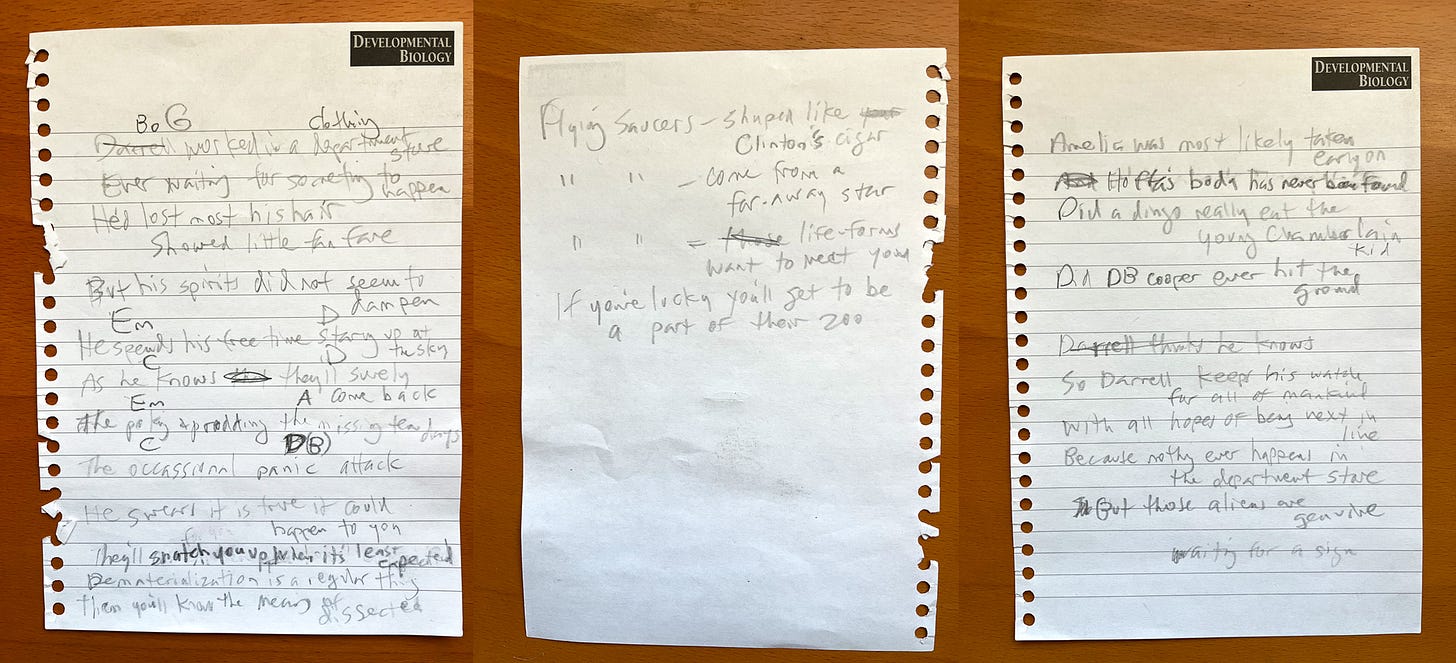 DEVELOPMENTAL
BIOLOGY
Bo G clothing
Darrell worked in a department
store
Ever waiting for something to
happen
He'd lost most his hair
Showed little fan fare
But his spirits did not seem to
dampen
Em D
He spends his free time staring up at
the sky
C D
As he knows they'll surely
come back
Em A
The poking & prodding the missing
C D B)
The occassional panic attack
He swears it is true it could
happen to you
They'll snatch you up when its least
expected
Dematerialization is a regular thing
Then you'll know the meaning of
dissected
Flying Saucers - shaped like your
Clinton's cigar
" " - come from a
far-away star
" " - those life-forms
want to meet you
If you're lucky you'll get to be
a part of their zoo
DEVELOPMENTAL
BIOLOGY
Amelia was most likely taken
early on
Hoffa's body has never been found
Did a dingo really eat the
young Chamberlain
kid
Did DB Cooper ever hit the
ground
Darrell thinks he knows
So Darrell keeps his watch
for all of mankind
With all hopes of being next in
line
Because nothing ever happens in
the department store
But those aliens are
genuine
waiting for a sign